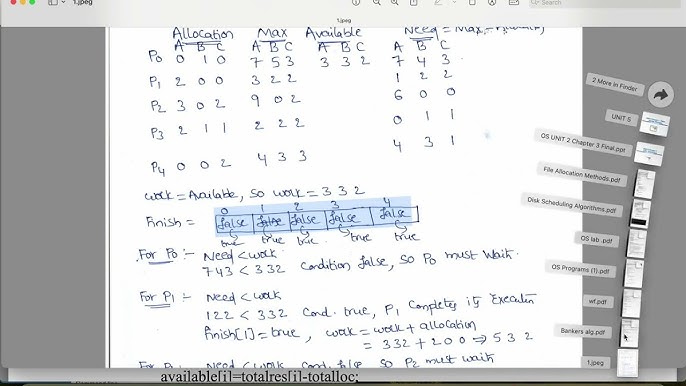 1.jpeg
1.jpeg
Allocation Max Available Need = Max -
A B C A B C A B C A B C
P0 0 1 0 7 5 3 3 3 2 7 4 3
P1 2 0 0 3 2 2 1 2 2
P2 3 0 2 9 0 2 6 0 0
P3 2 1 1 2 2 2 0 1 1
P4 0 0 2 4 3 3 4 3 1
work = Available, so work = 3 3 2
0 1 2 3 4
Finish = false false false false false
true true true true true
For P0 :- Need < work
743 < 332 Condition false, so P0 must wait.
For P1 :- Need < work
122 < 332 Cond. true, P1 Completes its Execution
Finish[1] = true, work = work + allocation
= 332 + 200 ⇒ 5 3 2
Need < work Cond. false so P2 must wait
available[i]=totalres[i]-totalloc;
2 More in Finder
UNIT 5
OS UNIT 2 Chapter 3 Final.ppt
File Allocation Methods.pdf
Disk Scheduling Algorithms.pdf
OS lab .pdf
OS Programs (1).pdf
wf.pdf
Bankers alg.pdf
1.jpeg